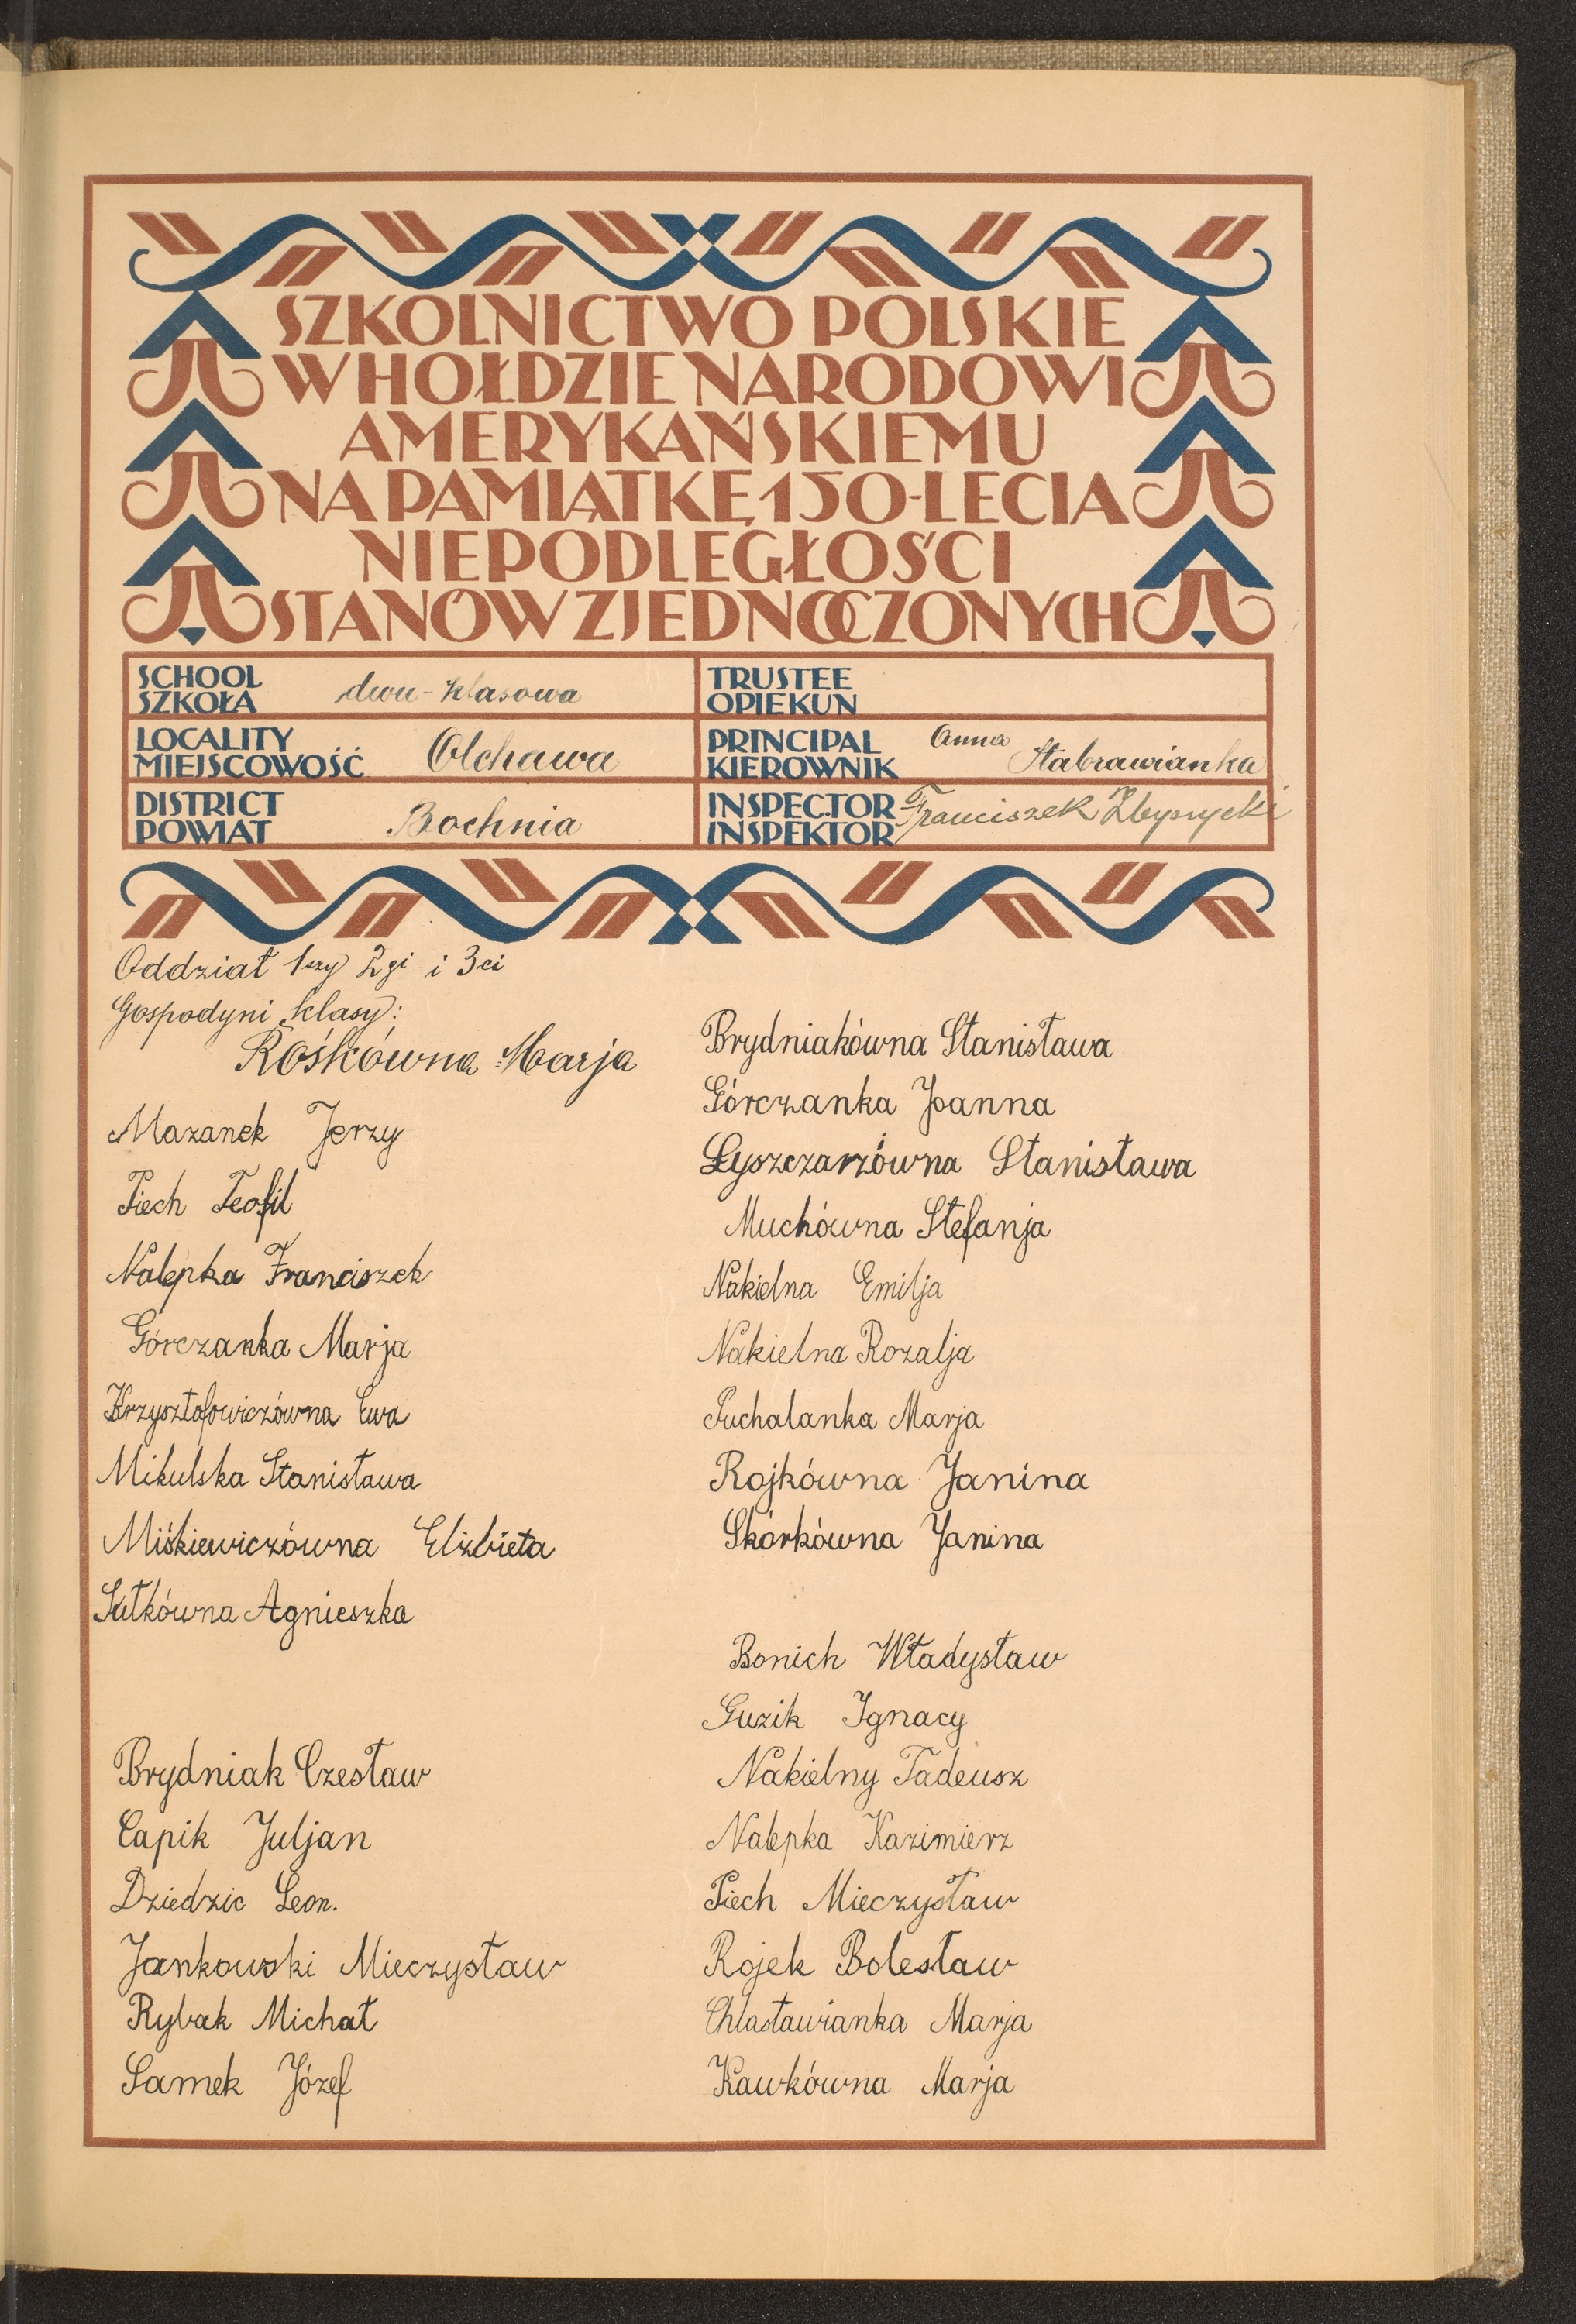 SZKOLNICTWO POLSKIE
W HOŁDZIE NARODOWI
AMERYKAŃSKIEMU
NA PAMIĄTKĘ 150-LECIA
NIEPODLEGŁOŚCI
STANÓW ZJEDNOCZONYCH
SCHOOL
SZKOŁA
dwu-klasowa
TRUSTEE
OPIEKUN
LOCALITY
MIEJSCOWOŚĆ
Olchawa
PRINCIPAL
KIEROWNIK
Anna Stabrawianka
DISTRICT
POWIAT
Bochnia
INSPECTOR
INSPEKTOR
Franciszek
Oddział 1szy 2gi i 3ci
Gospodyni klasy:
Rośkówna Marja
Mazanek Jerzy
Piech Teofil
Nalepka Franciszek
Górczanka Marja
Krzysztofowiczówna Ewa
Mikulska Stanisława
Miśkiewiczówna Elżbieta
Sułkówna Agnieszka
Brydniak Czesław
Capik Juljan
Dziedzic Leon.
Jankowski Mieczysław
Rybak Michał
Samek Józef
Brydniakówna Stanisława
Górczanka Joanna
Łyszczarzówna Stanisława
Muchówna Stefanja
Nakielna Emilja
Nakielna Rozalja
Puchalanka Marja
Rojkówna Janina
Skórkówna Janina
Bonich Władysław
Guzik Ignacy
Nakielny Tadeusz
Nalepka Kazimierz
Piech Mieczysław
Rojek Bolesław
Chlastawianka Marja
Kawkówna Marja